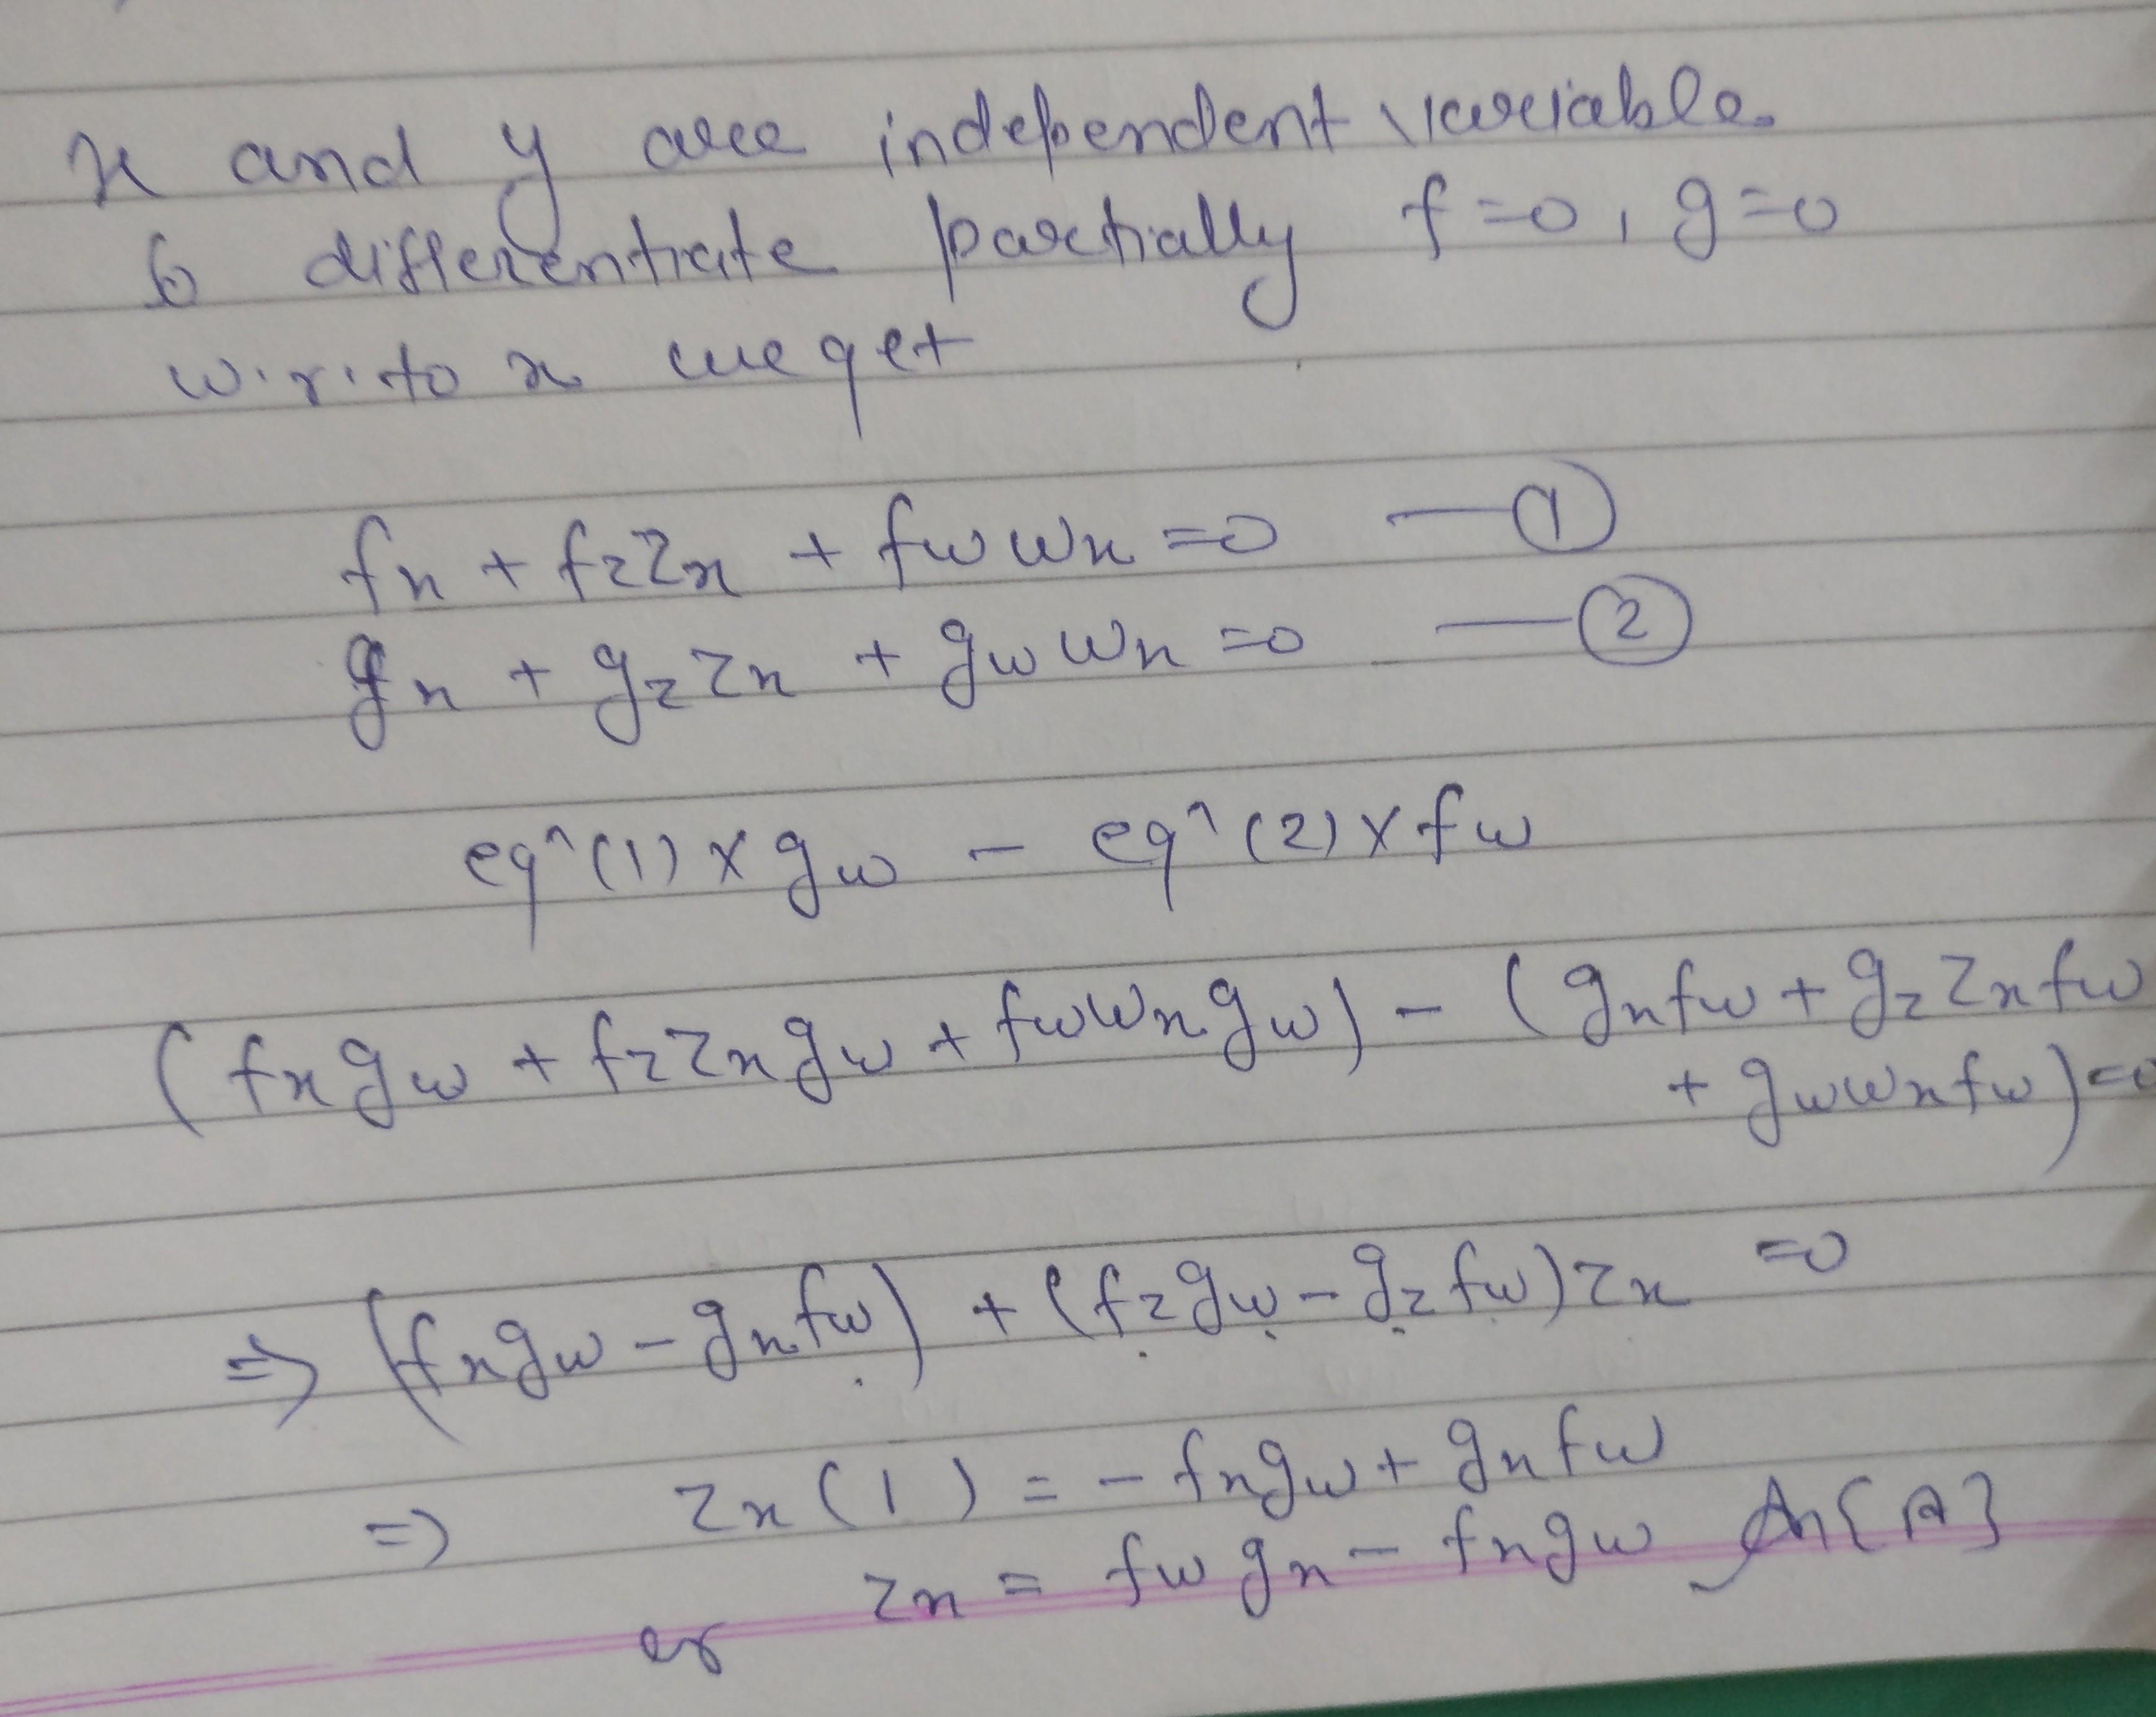 x and y are independent variable.
So differentiate partially f=0, g=0
w.r.to x we get
fx + fz Zx + fw wx =0 —(1)
gx + gz Zx + gw wx =0 —(2)
eqⁿ(1) × gw - eqⁿ(2) × fw
(fx gw + fz Zx gw + fw wx gw) - (gx fw + gz Zx fw
+ gw wx fw)=0
⇒ (fx gw - gx fw) + (fz gw - gz fw) Zx =0
⇒ Zx (1) = - fx gw + gx fw
or Zx = fw gx - fx gw An{A}